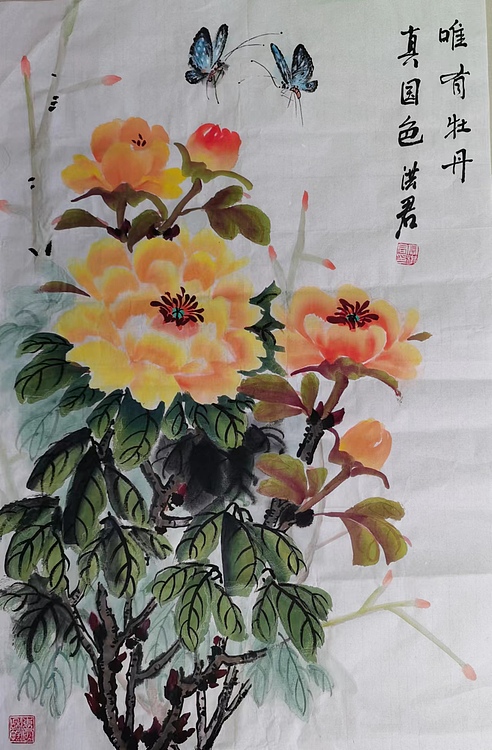 唯有牡丹
真国色 洪君